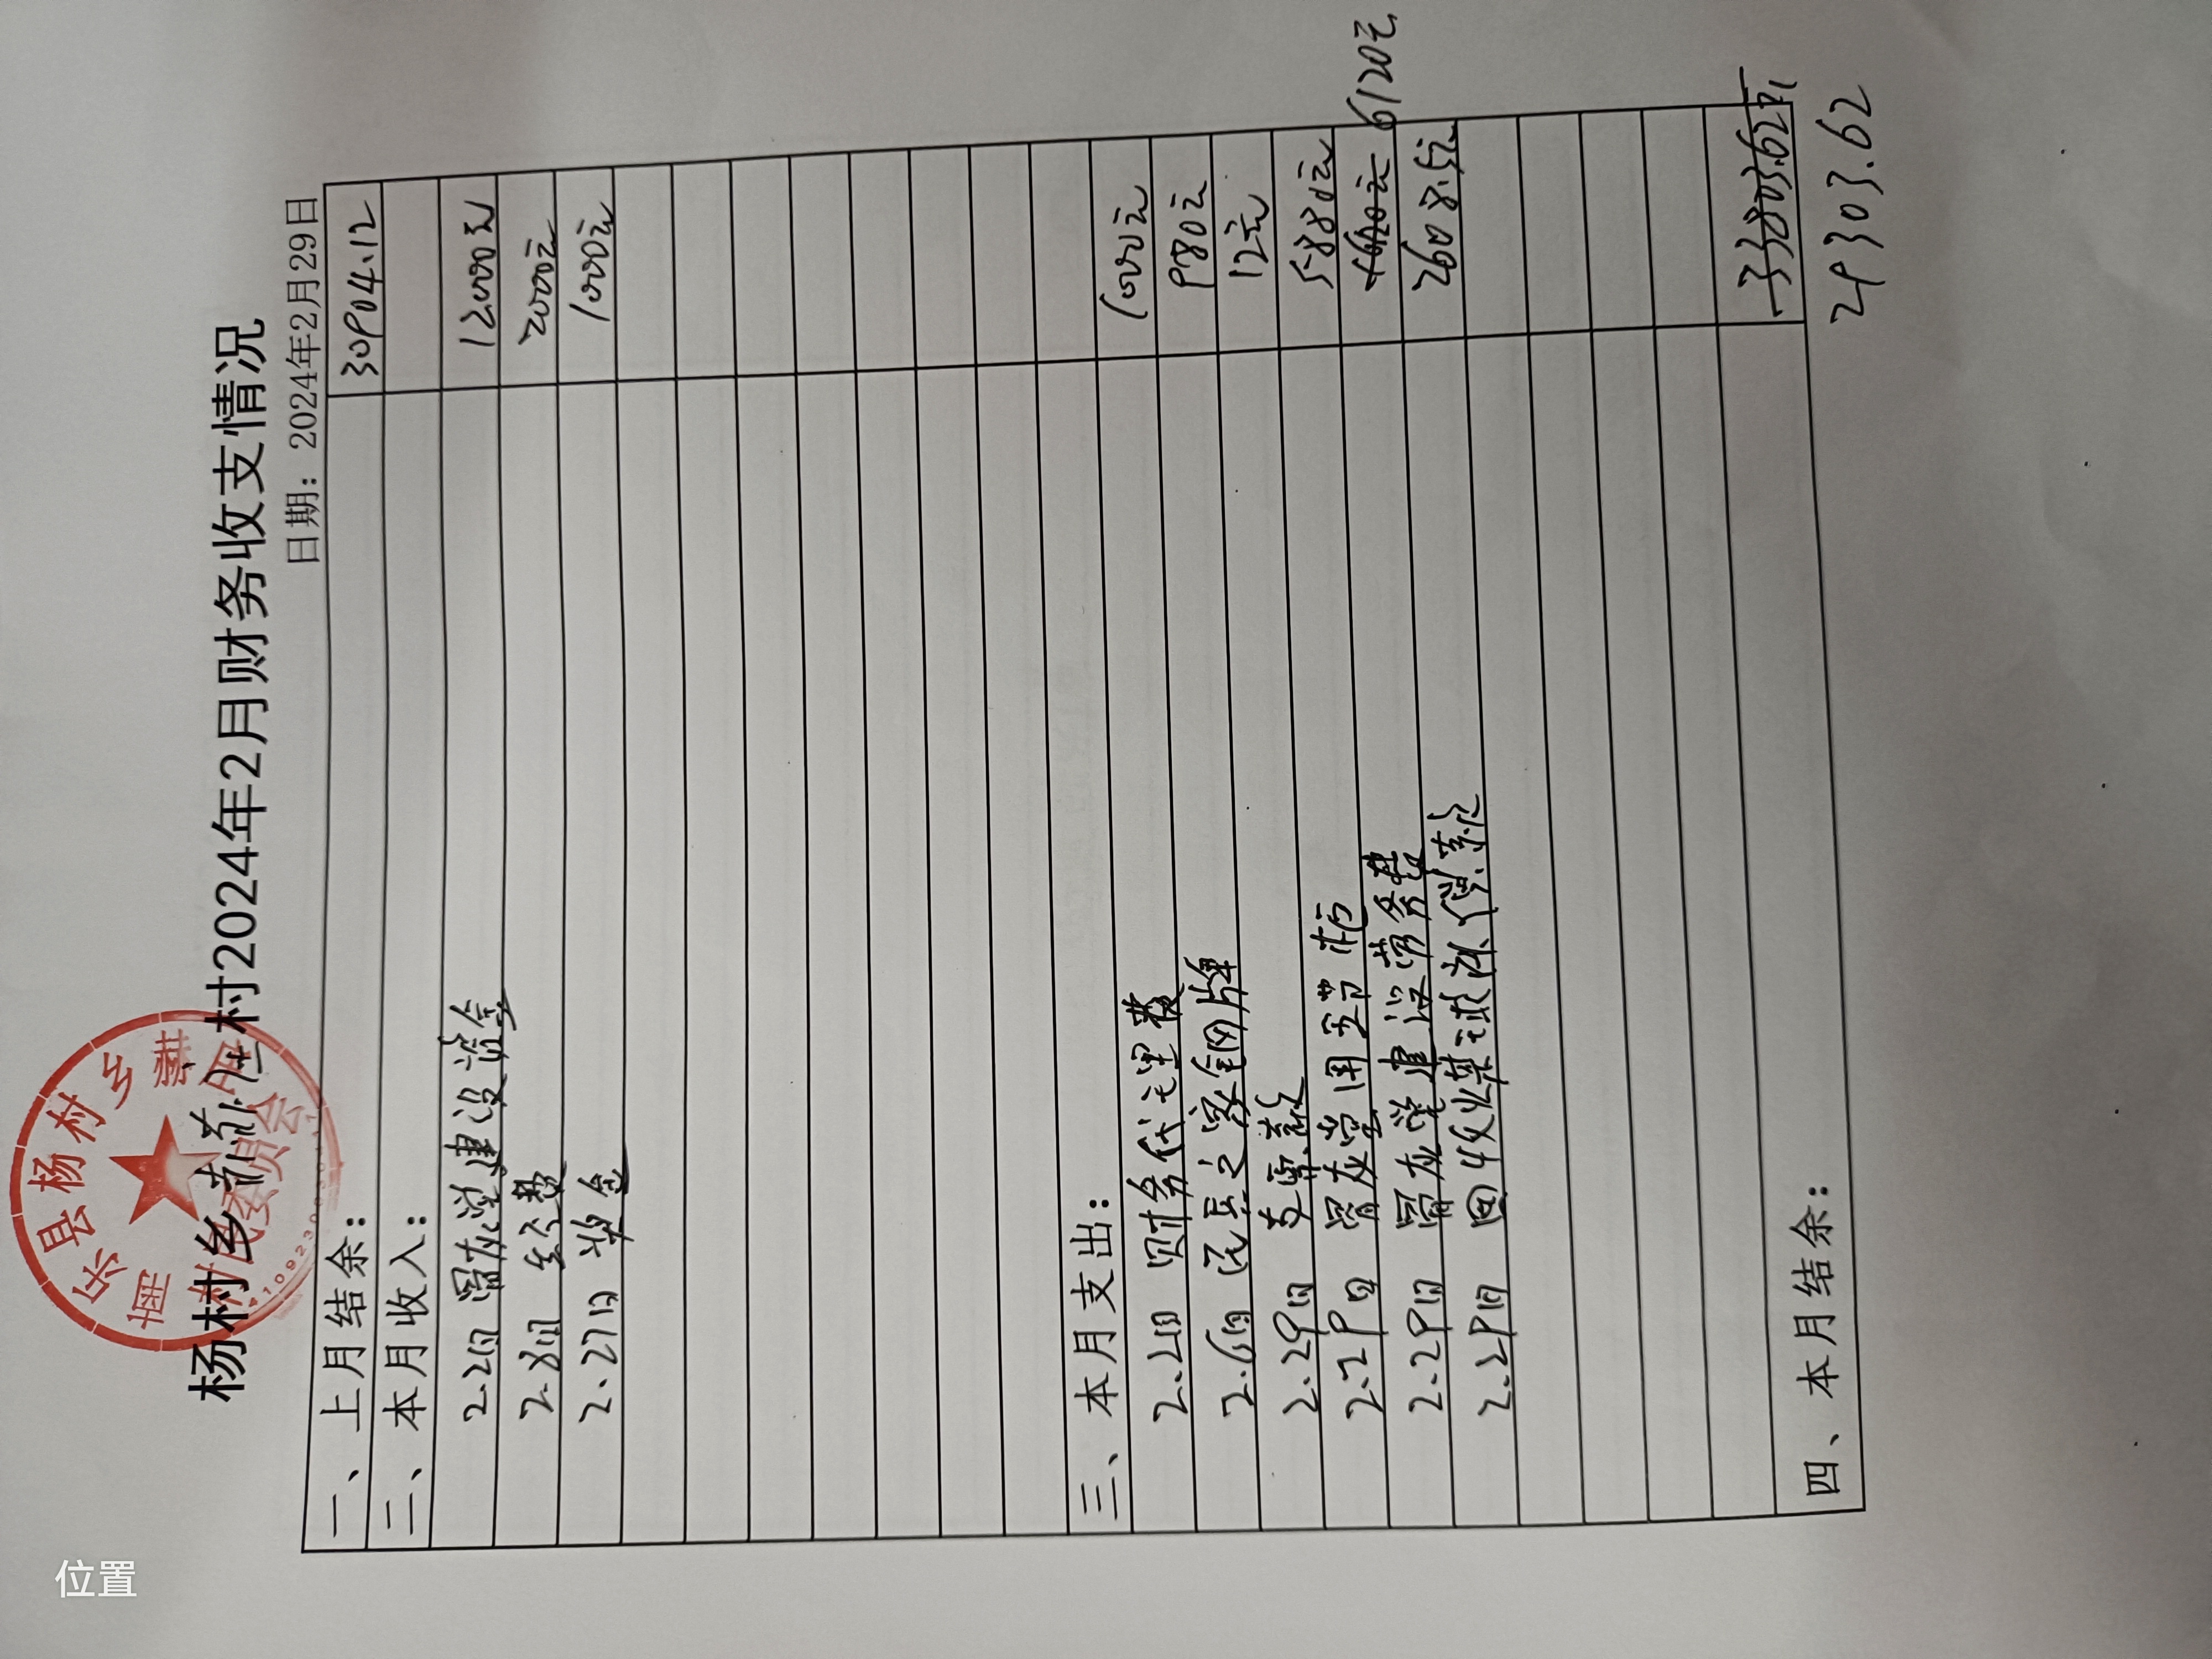 位置
南乐县杨村乡赫庄村民委员会
杨村乡赫庄村2024年2月财务收支情况
日期：2024年2月29日
一、上月结余： 30904.12
二、本月收入：
2.2日 骨灰堂建设资金 12000元
2.8日 生活费 2000元
2.27日 奖金 1000元
三、本月支出：
2.2日 财务代理费 1000元
2.6日 民兵之家铜牌 980元
2.29日 支票款 12元
2.29日 骨灰堂用 节柜 5880元
2.29日 骨灰堂建设劳务费 6120元
2.29日 回收煤球 款 2608.5元
33803.62元
四、本月结余： 29303.62